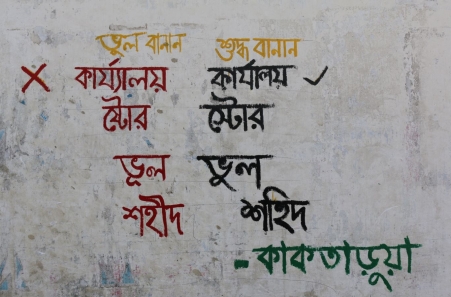 ভুল বানান শুদ্ধ বানান
কার্য্যালয় কার্যালয়
ষ্টোর স্টোর
ভূল ভুল
শহীদ শহিদ
- কাকতাড়ুয়া